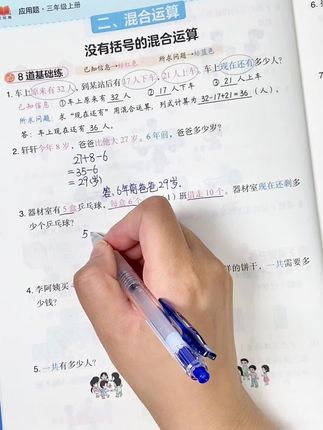 应用题·三年级上册
二、混合运算
没有括号的混合运算
已知信息→标红色 所求问题→标蓝色
8道基础练
1. 车上原来有32人，到某站后有17人下车，21人上车。车上现在有多少人？
已知信息：①车上原来有 32 人 ② 17 人下车 ③ 21 人上车
所求问题：求“现在有”用混合运算，列式计算为 32-17+21=36 (人)
答：车上现在有 36 人。
2. 轩轩今年8岁，爸爸比他大27岁。6年前，爸爸多少岁？
27+8-6
=35-6
=29(岁)
答：6年前爸爸29岁。
3. 器材室有5盒乒乓球，每盒6个
借走10个。器材室现在还剩多
少个乒乓球？
5
4. 李阿姨买
样的饼干，一共需要多
少钱？
5. 一共有多少人？